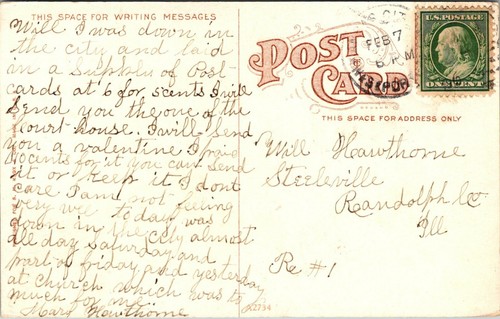 THIS SPACE FOR WRITING MESSAGES
Will I was down in
the city and laid
in a Supply of Post
cards at 6 for 5cents I will
Send you the one of the
Court-house. I will send
you a valentine I paid
10cants for it you can Send
it or Keep it I dont
care I am not feling
very well today was
down in the city almost
all day Saturday and
part of friday and yesterday
at church which was to
much for me
Mary Hawthorne
POST
CARD
FEB 7
6 PM
U.S. POSTAGE
ONE CENT
THIS SPACE FOR ADDRESS ONLY
Will Hawthorne
Steeleville
Randolph Co
Ill
Re #1
A2734